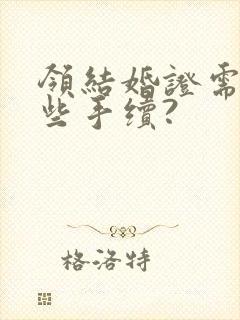 領結婚證需
些手續?
格洛特